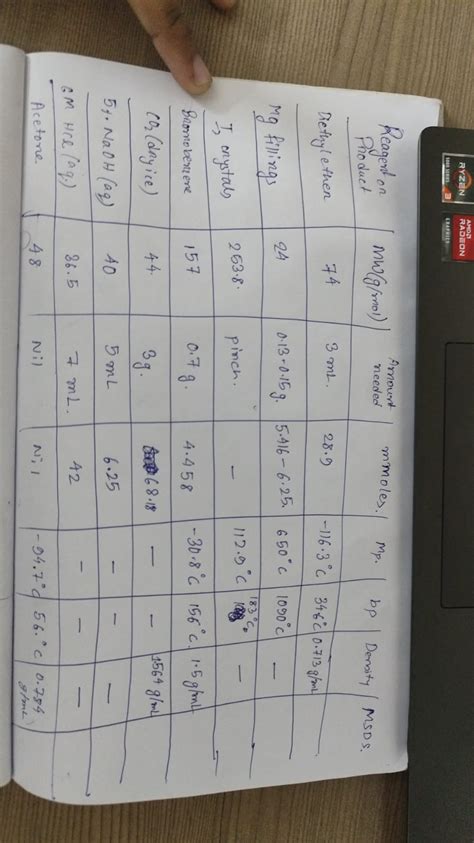 Reagent or Product | MW (g/mol) | Amount needed | mmoles. | Mp. | bp | Density | MSDS.
Diethylether | 74 | 3 mL. | 28.9 | -116.3°C | 34.6°C | 0.713 g/mL
Mg fillings | 24 | 0.13-0.15g. | 5.416-6.25 | 650°C | 1090°C | —
I2 crystals | 253.8. | pinch. | — | 112.9°C | 183°C. | —
Bromobenzene | 157 | 0.7g. | 4.458 | -30.8°C | 156°C. | 1.5 g/mL
CO2 (dry ice) | 44 | 3g. | 68.18 | — | — | 1564 g/mL
5%. NaOH (aq) | 40 | 5 mL | 6.25 | — | — | —
6M HCl (aq.) | 36.5 | 7 mL. | 42 | — | — | —
Acetone | 48 | Nil | Nil | -94.7°C | 56.°C | 0.784 g/mL
RYZEN
3
AMD
RADEON
GRAPHICS